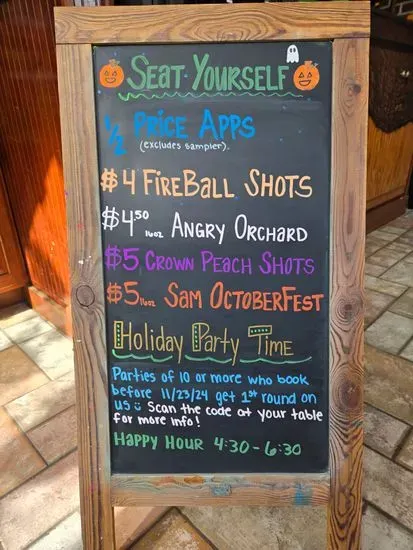 Seat Yourself
1/2 Price Apps
(excludes sampler).
$4 FireBall Shots
$4.50 16oz Angry Orchard
$5 Crown Peach Shots
$5 16oz Sam OctoberFest
Holiday Party Time
Parties of 10 or more who book
before 11/23/24 get 1st round on
us Scan the code at your table
for more info!
Happy Hour 4:30-6:30